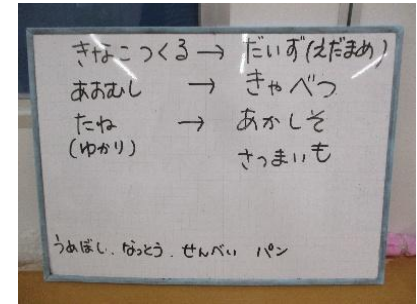 きなこつくる→だいず(えだまめ)
あおむし→きゃべつ
たね→あかしそ
(ゆかり) さつまいも
うめぼし.なっとう.せんべい パン